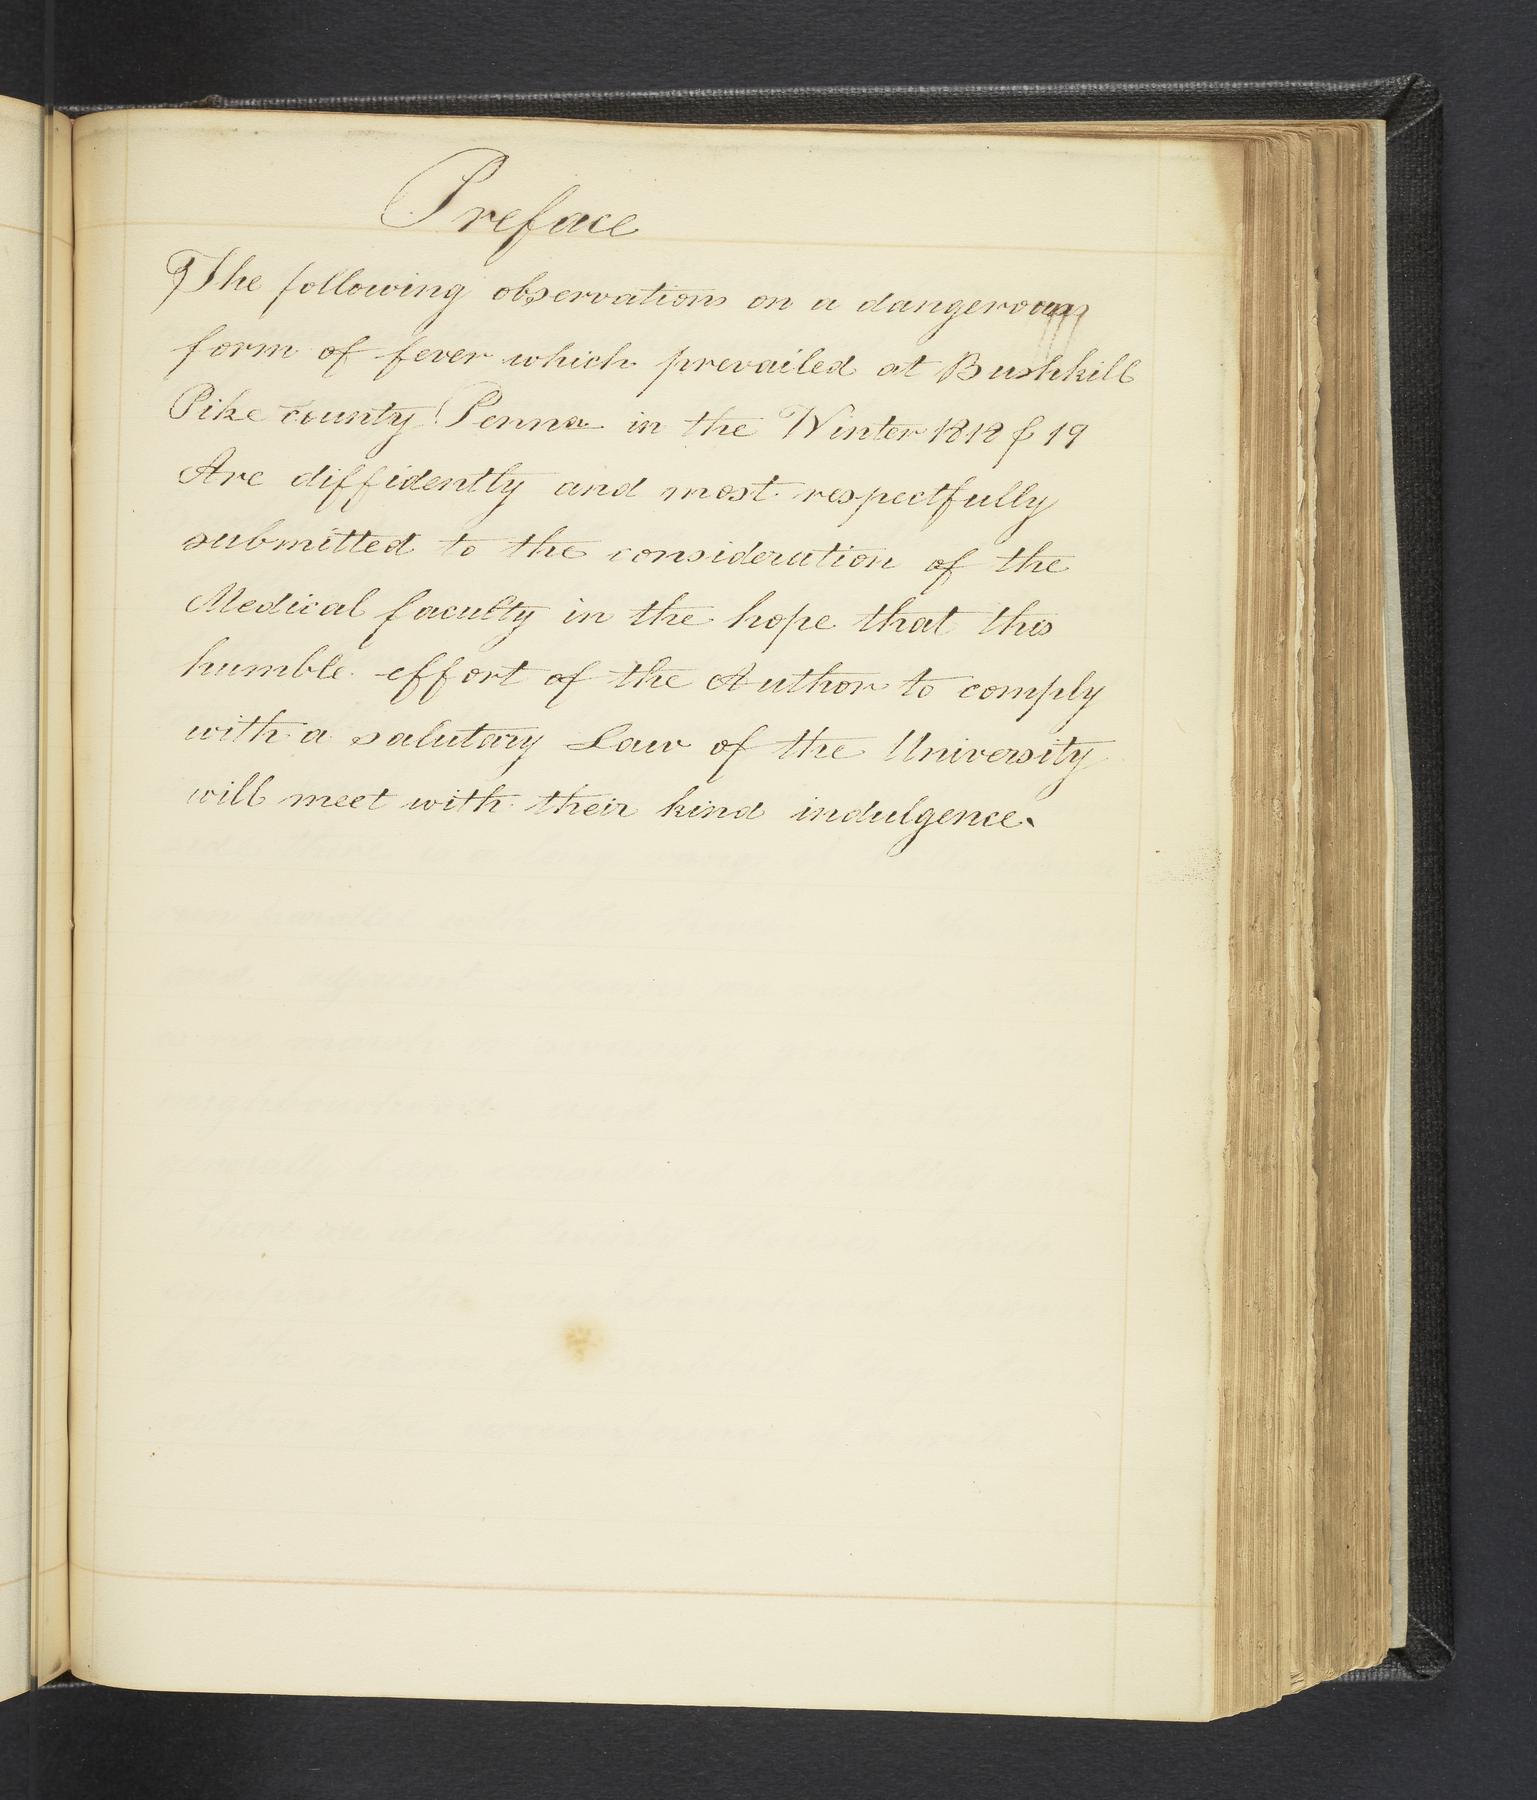 Preface
The following observations on a dangerous
form of fever which prevailed at Bushkill
Pike county Penna in the Winter 1818 & 19
Are diffidently and most respectfully
submitted to the consideration of the
Medical faculty in the hope that this
humble effort of the Author to comply
with a salutary Law of the University
will meet with their kind indulgence.